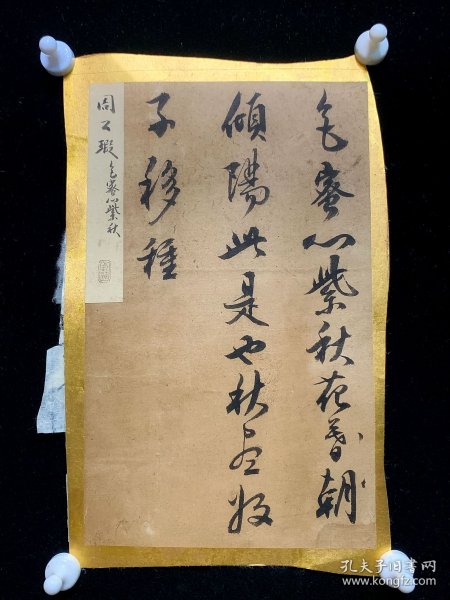 色蜜心紫秋花暮朝
傾陽此是也秋盡收
子移種
周公瑕色蜜心紫秋
孔夫子旧书网
www.kongfz.com